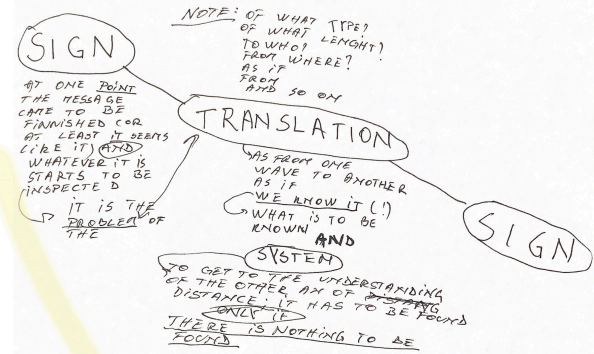 NOTE: OF WHAT TYPE?
OF WHAT LENGHT?
TO WHO?
FROM WHERE?
AS IF
FROM
AND SO ON
SIGN
AT ONE POINT
THE MESSAGE
CAME TO BE
FINNISHED (OR
AT LEAST IT SEEMS
LIKE IT) AND
WHATEVER IT IS
STARTS TO BE
INSPECTED
IT IS THE
PROBLEM OF
THE
TRANSLATION
AS FROM ONE
WAVE TO ANOTHER
AS IF
WE KNOW IT (!)
WHAT IS TO BE
KNOWN AND
SIGN
SYSTEM
TO GET TO THE UNDERSTANDING
OF THE OTHER AN OF
DISTANCE; IT HAS TO BE FOUND
ONLY IF
THERE IS NOTHING TO BE
FOUND